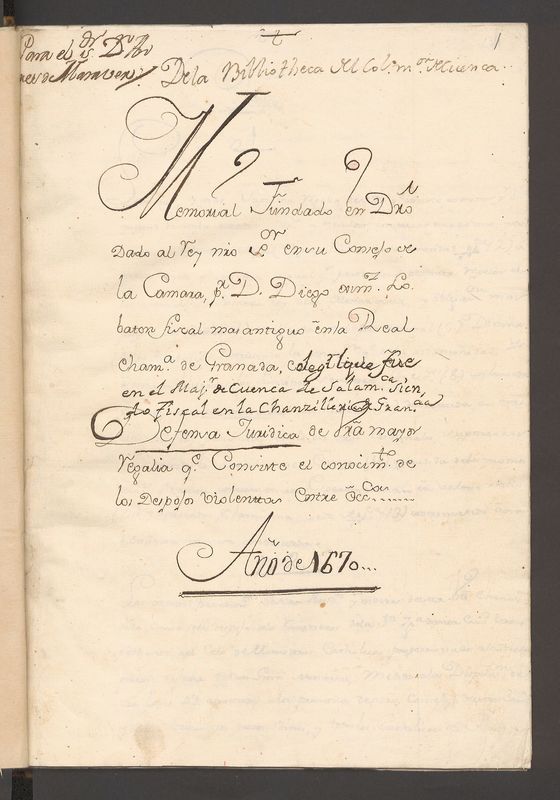 1
Para el Sr. Dn.
Dela Bibliotheca del Col. mor. de Cuenca.
Memorial Fundado en Dro
Dado al Rey nro Sor en su Consejo de
la Camara, pr. D. Diego Ximz. Lo.
baton fiscal mas antiguo en la Real
Cham.a de Granada, colegl que fue
en el Mayr. de Cuenca de Salam.ca sien-
do Fiscal en la Chanzilleria de Gran.da
Defensa Juridica de Rª mayor
Regalia qe. Consiste el conocim.to de
los Despojos violentos entre Ecc.cos
Año de 1670...